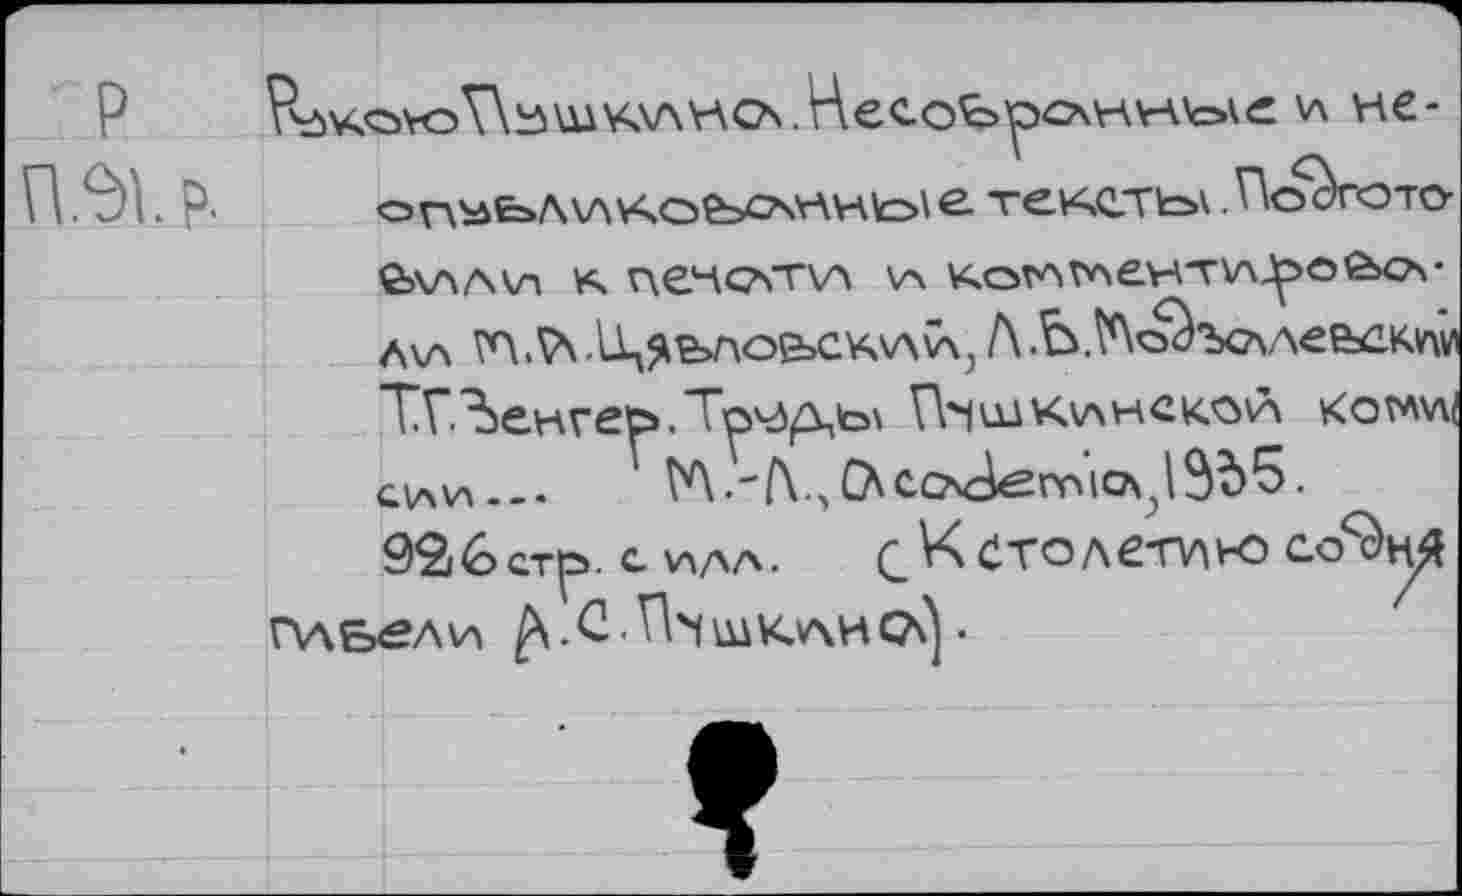 Р Рукою Пушкина. Несобранные и не-
П.91.р. опубликованные тексты. Подгото-
вили к печати и комментирова-
ли М.А.Цявловский, Л.Б.Модзалевский
Т.Г.Зенгер. Труды Пушкинской коми
сии... М.-Л., Academia, 1935.
926 стр. с илл. (К столетию со дня
гибели А.С.Пушкина).